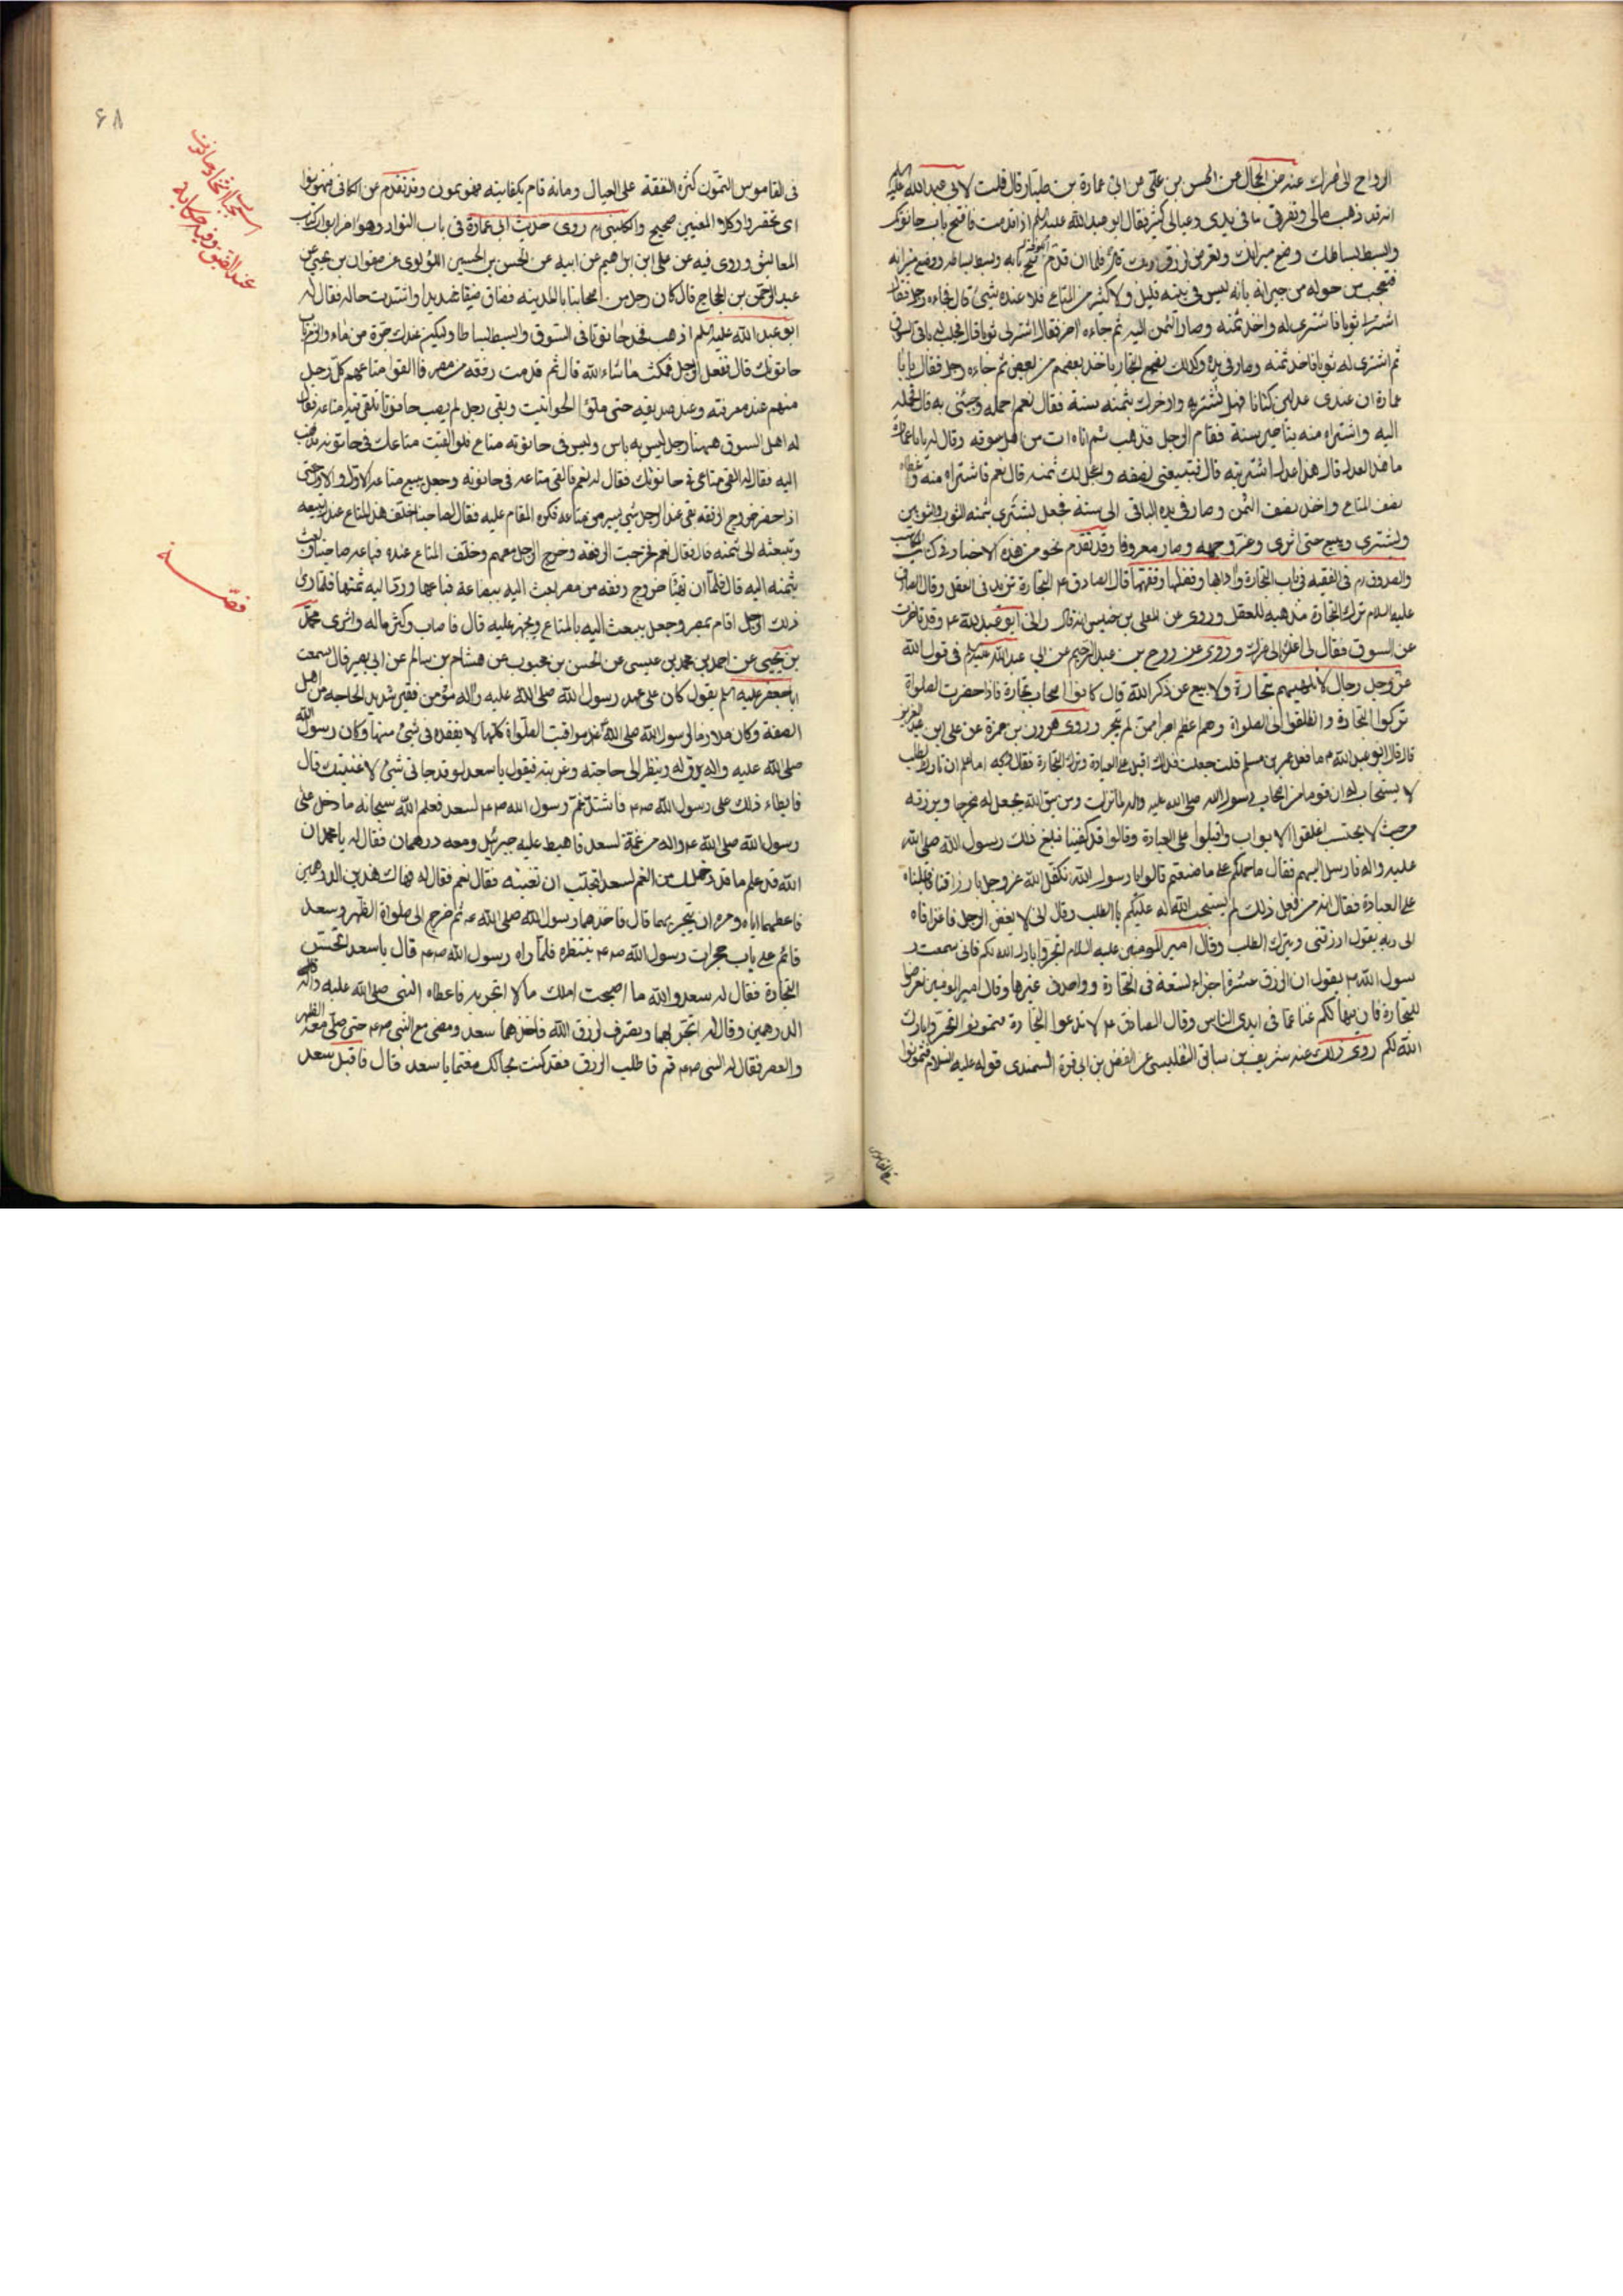 الرواح الى فراك عنه عن الجمال عن الحسن بن علي عن ابي عمارة بن طيار قال قلت لابي عبد الله عليه السلم
انه قد ذهب مالي وتفرق ما في يدي وعيالي كثير فقال ابو عبد الله عليه السلم اذا قدمت فافتح باب حانوتك
وابسط بساطك وضع ميزانك وتعرض لرزق ربك قال فلما ان قدم فتح بابه وبسط بساطه ووضع ميزانه
فتعجب من حوله من جيرانه بانه ليس في بيته قليل ولا كثير من المتاع ولا عنده شيئ قال فجاءه رجل فقال
اشتر لي ثوبا فاشترى له واخذ ثمنه وصار الثمن اليه ثم جاءه اخر فقال اشتر لي ثوبا قال فجلب له باقي السوق
ثم اشترى له ثوبا فاخذ ثمنه وصار في يده وكذلك يصنع التجار ياخذ بعضهم من بعض ثم جاءه رجل فقال يا با
عمارة ان عندي عدلين كتانا فهل تشتريه واؤخرك بثمنه سنة فقال نعم احمله وجئني به قال فحمله
اليه واشتراه منه بتاخير سنة فقام الرجل فذهب ثم اتاه ات من اهل سوقه وقال له يا با عمارة
ما هذا العدل قال هذا عدل اشتريته قال فتبيعني نصفه واعجل لك ثمنه قال نعم فاشتراه منه واعطاه
نصف المتاع واخذ نصف الثمن وصار في يده الباقي الى سنة فجعل يشتري بثمنه الثوب والثوبين
ويشتري ويبيع حتى اثرى وعز وجهه وصار معروفا وقد تقدم نحو من هذه الاخبار في كتاب المكاسب
والصدوق ره في الفقيه في باب التجارة وادابها وفضلها وفقهها قال الصادق ع التجارة تزيد في العقل وقال الصادق
عليه السلام ترك التجارة مذهبة للعقل وروي عن المعلى بن خنيس انه قال راني ابو عبد الله ع وقد تاخرت
عن السوق فقال لي اغد الى عزك وروي عن روح بن عبد الرحيم عن ابي عبد الله عليه السلم في قول الله
عز وجل رجال لا تلهيهم تجارة ولا بيع عن ذكر الله قال كانوا اصحاب تجارة فاذا حضرت الصلواة
تركوا التجارة وانطلقوا الى الصلواة وهم اعظم اجرا ممن لم يتجر وروى هرون بن حمزة عن علي ابن عبد العزيز
قال قال ابو عبد الله ع ما فعل عمر بن مسلم قلت جعلت فداك اقبل على العبادة وترك التجارة فقال ويحه اما علم ان تارك الطلب
لا يستجاب له ان قوما من اصحاب رسول الله صلى الله عليه واله لما نزلت ومن يتق الله يجعل له مخرجا ويرزقه
من حيث لا يحتسب اغلقوا الابواب واقبلوا على العبادة وقالوا قد كفينا فبلغ ذلك رسول الله صلى الله
عليه واله فارسل اليهم فقال ما حملكم على ما صنعتم قالوا يا رسول الله تكفل الله عز وجل بارزاقنا فاقبلنا
على العبادة فقال انه من فعل ذلك لم يستجب الله له عليكم بالطلب وقال اني لا بغض الرجل فاغرا فاه
الى ربه يقول ارزقني ويترك الطلب وقال امير المومنين عليه السلام اتجروا بارك الله لكم فاني سمعت ر
سول الله ص يقول ان الرزق عشرة اجزاء تسعة في التجارة وواحد في غيرها وقال امير المومنين تعرضوا
للتجارة فان فيها لكم غنا عما في ايدي الناس وقال الصادق ع لا تدعوا التجارة فتهونوا اتجروا بارك
الله لكم روى ذلك عنه شريف بن سابق التفليسي عن الفضل بن ابي قرة السمندي قوله عليه السلام فتمونوا
۶۸
عند الضيق وفيه حكاية
قصة
في القاموس التمون كثرة النفقة على العيال ومانه قام بكفايته فهو يمون وقد تقدم عن الكافي فتهونوا
اي تحقروا وكلا المعنيين صحيح والكليني ره روى حديث ابي عمارة في باب النوادر وهو اخر ابواب كتاب
المعايش وروى فيه عن علي ابن ابراهيم عن ابيه عن الحسن بن الحسين اللؤلوي عن صفوان بن يحيى عن
عبد الرحمن بن الحجاج قال كان رجل من اصحابنا بالمدينه فضاق ضيقا شديدا واشتدت حاله فقال له
ابو عبد الله عليه السلم اذهب فخذ حانوتا في السوق وابسط بساطا وليكن عندك جرة من ماء والزم باب
حانوتك قال ففعل الرجل فمكث ما شاء الله قال ثم قدمت رفقة من مصر فالقوا متاعهم كل رجل
منهم عند معرفته وعند صديقه حتى ملؤا الحوانيت وبقي رجل لم يصب حانوتا يلقي فيه متاعه فقال
له اهل السوق ههنا رجل ليس به باس وليس في حانوته متاع فلو القيت متاعك في حانوته فذهب
اليه فقال له القي متاعي في حانوتك فقال له نعم فالقى متاعه في حانوته وجعل يبيع متاعه الاول والاول حتى
اذا حضر خروج الرفقة بقي عند الرجل شيئ يسير من متاعه فكره المقام عليه فقال لصاحبنا اخلف هذا المتاع عندك تبيعه
وتبعث الي ثمنه قال فقال نعم فخرجت الرفقة وخرج الرجل معهم وخلف المتاع عنده فباعه صاحبنا وبعث
بثمنه اليه قال فلما ان تهيا خروج رفقه من مصر بعث اليه ببضاعة فباعها ورد اليه ثمنها فلما راى
ذلك الرجل اقام بمصر وجعل يبعث اليه بالمتاع ويجهز عليه قال فاصاب وكثر ماله واثرى محمد
بن يحيى عن احمد بن محمد بن عيسى عن الحسن بن محبوب عن هشام بن سالم عن ابي بصير قال سمعت
ابا جعفر عليه السلم يقول كان على عهد رسول الله صلى الله عليه واله مؤمن فقير شديد الحاجه من اهل
الصفة وكان ملازما لرسول الله صلى الله عند مواقيت الصلواة كلها لا يفقده في شيئ منها وكان رسول الله
صلى الله عليه واله يرق له وينظر الى حاجته وغربته فيقول يا سعد لو قد جاني شيئ لاغنيتك قال
فابطاء ذلك على رسول الله ص فاشتد غم رسول الله ص لسعد فعلم الله سبحانه ما دخل على
رسول الله صلى الله ع واله من غمة لسعد فاهبط عليه جبرئيل ومعه درهمان فقال له يا محمد ان
الله قد علم ما قد دخلك من الغم لسعد افتحب ان تغنيه فقال نعم فقال له فهاك هذين الدرهمين
فاعطهما اياه ومره ان يتجر بهما قال فاخذهما رسول الله صلى الله ع ثم خرج الى صلواة الظهر وسعد
قائم على باب حجرات رسول الله ص ينتظره فلما راه رسول الله ص قال يا سعد اتحسن
التجارة فقال له سعد والله ما اصبحت املك مالا اتجر به فاعطاه النبي صلى الله عليه واله
الدرهمين وقال له اتجر بهما وتصرف لرزق الله فاخذهما سعد ومضى مع النبي ص حتى صلى معه الظهر
والعصر فقال له النبي ص قم فاطلب الرزق فقد كنت بحالك مغتما يا سعد قال فاقبل سعد